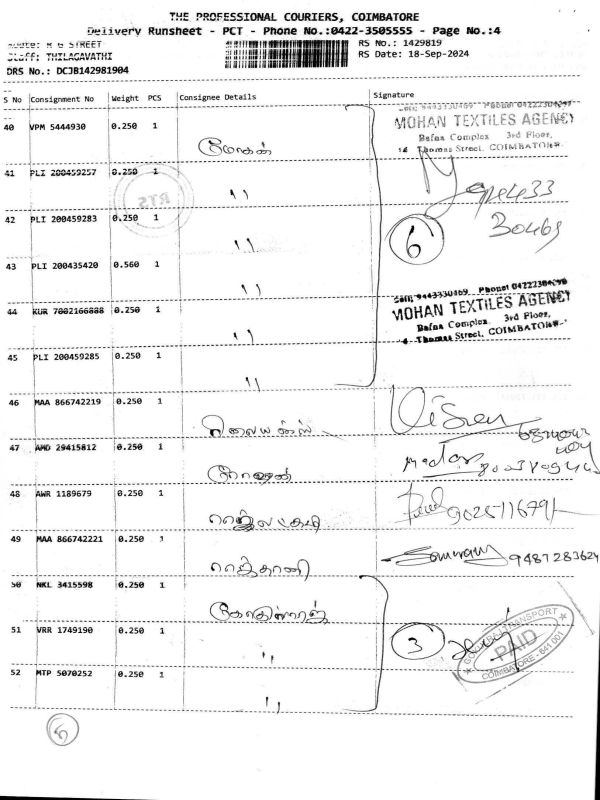 THE PROFESSIONAL COURIERS, COIMBATORE
Delivery Runsheet - PCT - Phone No.:0422-3505555 - Page No.:4
Route: R G STREET
RS No.: 1429819
Staff: THILAGAVATHI
RS Date: 18-Sep-2024
DRS No.: DCJB142981904
S No Consignment No Weight PCS Consignee Details Signature
40 VPM 5444930 0.250 1 மோகன்
MOHAN TEXTILES AGENCY
Bafna Complex 3rd Floor,
Thomas Street, COIMBATORE
41 PLI 200459257 0.250 1 11
RTS
42 PLI 200459283 0.250 1 11
6
43 PLI 200435420 0.560 1 11
Cell: 9443330469 Phone: 04222304690
MOHAN TEXTILES AGENCY
44 KUR 7002166888 0.250 1 11
Bafna Complex 3rd Floor,
Thomas Street, COIMBATORE
45 PLI 200459285 0.250 1 11
46 MAA 866742219 0.250 1
47 AMD 29415812 0.250 1
Madan
48 AWR 1189679 0.250 1
49 MAA 866742221 0.250 1 ராஜ்தானி
9487283624
50 NKL 3415598 0.250 1 கோகுல்ராஜ்
51 VRR 1749190 0.250 1 11
3
TRANSPORT
PAID
COIMBATORE - 641 001
52 MTP 5070252 0.250 1 11
6